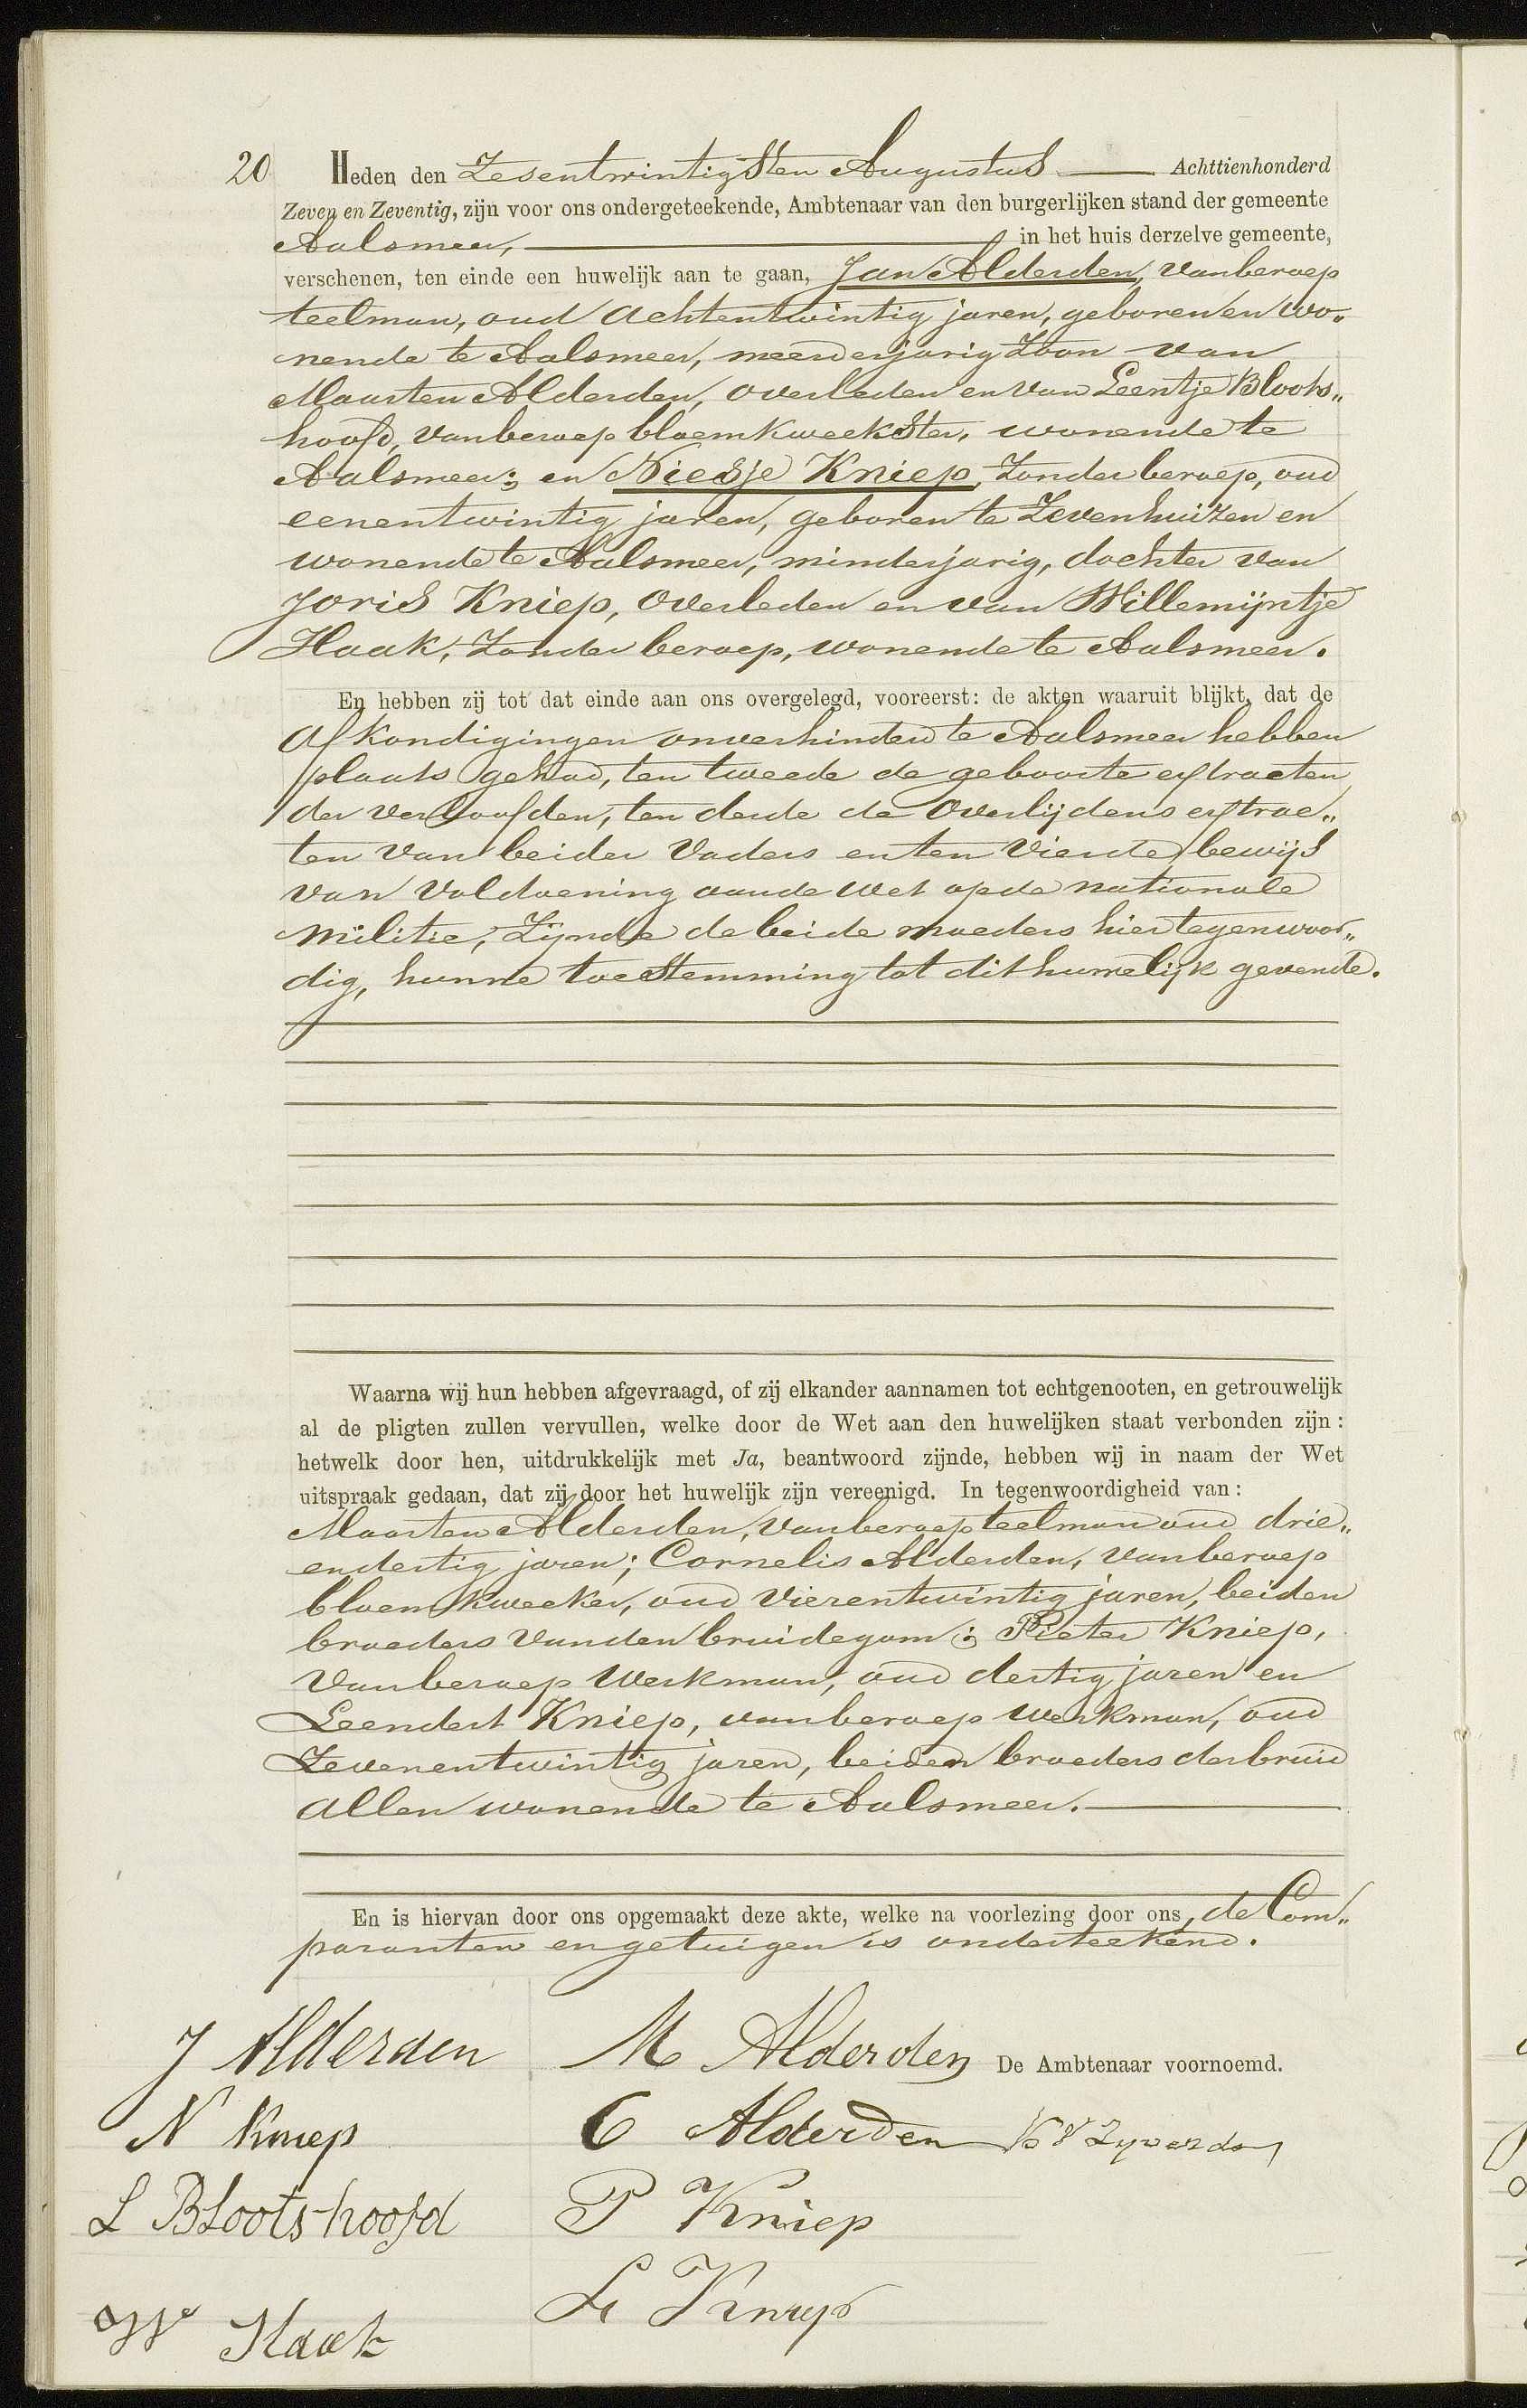 20 Heden den Zesentwintigsten Augustus Achttienhonderd
Zeven en Zeventig, zijn voor ons ondergeteekende, Ambtenaar van den burgerlijken stand der gemeente
Aalsmeer, in het huis derzelve gemeente,
verschenen, ten einde een huwelijk aan te gaan, Jan Alderden, van beroep
teelman, oud achtentwintig jaren, geboren en wo„
nende te Aalsmeer, meerderjarig Zoon van
Maarten Alderden, overleden en van Leentje Bloots„
hoofd, van beroep bloemkweekster, wonende te
Aalsmeer; en Niesje Kniep, Zonder beroep, oud
eenentwintig jaren, geboren te Zevenhuizen en
wonende te Aalsmeer, minderjarig, dochter van
Joris Kniep, overleden en van Willemijntje
Haak, Zonder beroep, wonende te Aalsmeer.
En hebben zij tot dat einde aan ons overgelegd, vooreerst: de akten waaruit blijkt, dat de
afkondigingen onverhinderd te Aalsmeer hebben
plaats gehad, ten tweede de geboorte extracten
der verloofden, ten derde de overlijdens extrac„
ten van beider Vaders en ten Vierde bewijs
van Voldoening aan de wet op de nationale
militie, Zijnde de beide moeders hier tegenwoor„
dig, hunne toestemming tot dit huwelijk gevende.
Waarna wij hun hebben afgevraagd, of zij elkander aannamen tot echtgenooten, en getrouwelijk
al de pligten zullen vervullen, welke door de Wet aan den huwelijken staat verbonden zijn:
hetwelk door hen, uitdrukkelijk met Ja, beantwoord zijnde, hebben wij in naam der Wet
uitspraak gedaan, dat zij door het huwelijk zijn vereenigd. In tegenwoordigheid van:
Maarten Alderden, van beroep teelman oud drie„
endertig jaren; Cornelis Alderden, van beroep
bloemkweeker, oud vierentwintig jaren, beiden
broeders van den bruidegom; Pieter Kniep,
van beroep Werkman, oud dertig jaren en
Leendert Kniep, van beroep werkman, oud
Zevenentwintig jaren, beiden broeders der bruid
allen wonende te Aalsmeer.
En is hiervan door ons opgemaakt deze akte, welke na voorlezing door ons, de Com„
paranten en getuigen is onderteekend.
J Alderden M Alderden De Ambtenaar voornoemd.
N Kniep C Alderden
L Blootshoofd P Kniep
W Haak L Kniep